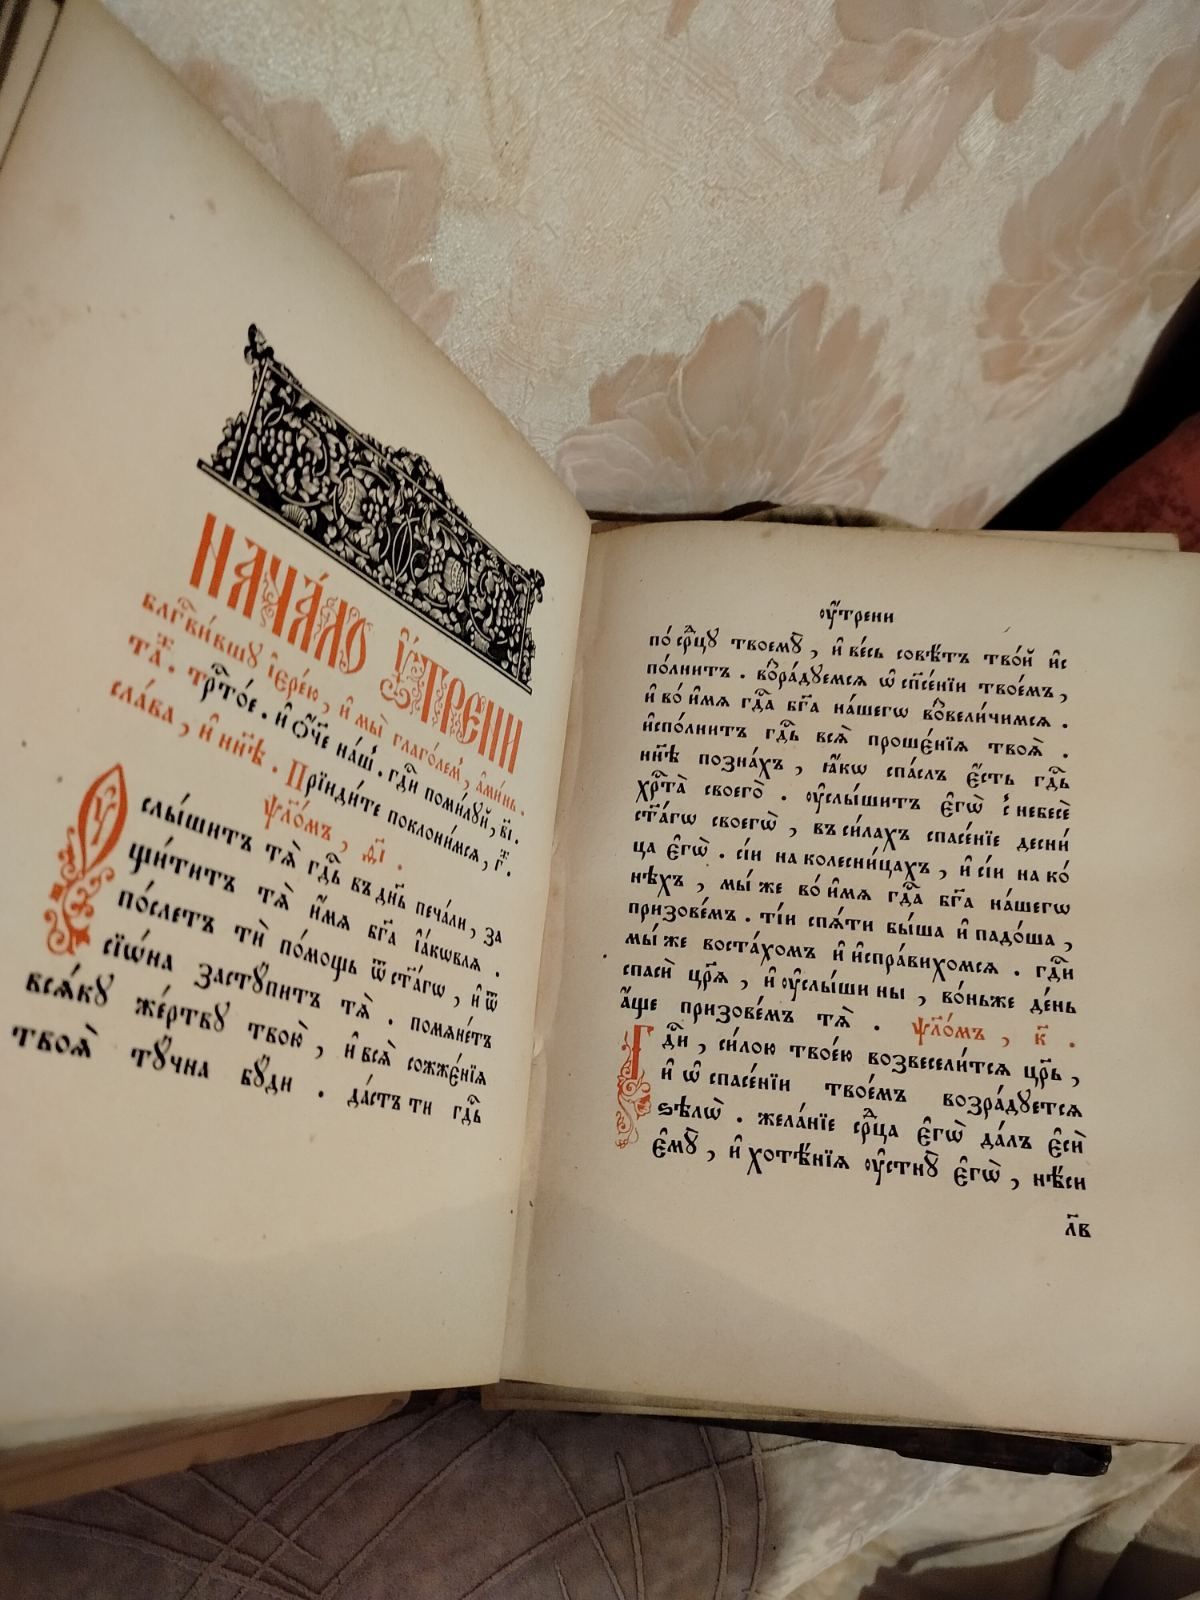 НАЧА́ЛО ᲂУ҆́ТРЕНИ
Блгⷭ҇ви́вшꙋ і҆ере́ю, и҆ мы̀ глаго́лемъ, а҆ми́нь.
та́ж. трⷭ҇то́е. и҆ ѻ҆́ч҃е на́шъ. гдⷭ҇и поми́лꙋй, в҃і.
сла́ва, и҆ нн҃ѣ. Прїиди́те поклони́мсѧ, г҃ж.
ѱло́мъ, ѳ҃і.
Оу҆
слы́шитъ тѧ̀ гдⷭ҇ь въ дн҃ь печа́ли, за
щи́титъ тѧ̀ и҆́мѧ бг҃а і҆а́кѡвлѧ.
по́слетъ тѝ по́мощь ѿ ст҃а́гѡ, и҆ ѿ
сїѡ́на застꙋ́питъ тѧ̀. помѧне́тъ
всѧ́кꙋ же́ртвꙋ твою̀, и҆ всѧ̀ сожже́нїѧ
твоѧ̀ тꙋ́чна бꙋ́ди. да́стъ ти гдⷭ҇ь
ᲂу҆́трени
по́ срⷣцꙋ твоемꙋ̀, и҆ ве́сь совѣ́тъ тво́й и҆с
по́лнитъ. возра́дꙋемсѧ ѡ҆ сп҃се́нїи твое́мъ,
и҆ во́ и҆мѧ гдⷭ҇а бг҃а на́шегѡ возвели́чимсѧ.
и҆спо́лнитъ гдⷭ҇ь всѧ̀ проше́нїѧ твоѧ̀.
нн҃ѣ позна́хъ, ꙗ҆́кѡ спа́слъ є҆́сть гдⷭ҇ь
хрⷭ҇та̀ своего̀. ᲂу҆слы́шитъ є҆гѡ̀ с̾ небесѐ
ст҃а́гѡ своегѡ̀, въ си́лахъ спасе́нїе десни́
ца є҆гѡ̀. сі́и на колесни́цахъ, и҆ сі́и на ко́
нѣхъ, мы́ же во́ и҆мѧ гдⷭ҇а бг҃а на́шегѡ
призове́мъ. ті́и спѧ́ти бы́ша и҆ падо́ша,
мы́ же воста́хомъ и҆ и҆спра́вихомсѧ. гдⷭ҇и
спасѝ цр҃ѧ, и҆ ᲂу҆слы́ши ны, во́ньже де́нь
а҆́ще призове́мъ тѧ̀. ѱло́мъ, к҃.
Гдⷭ҇и, си́лою твое́ю возвесели́тсѧ цр҃ь,
и҆ ѡ҆ спасе́нїи твое́мъ возра́дꙋетсѧ
ѕѣлѡ̀. жела́нїе срⷣца є҆гѡ̀ да́лъ є҆сѝ
є҆мꙋ̀, и҆ хотѣ́нїѧ ᲂу҆стнꙋ̀ є҆гѡ̀, нѣ́си
л҃в